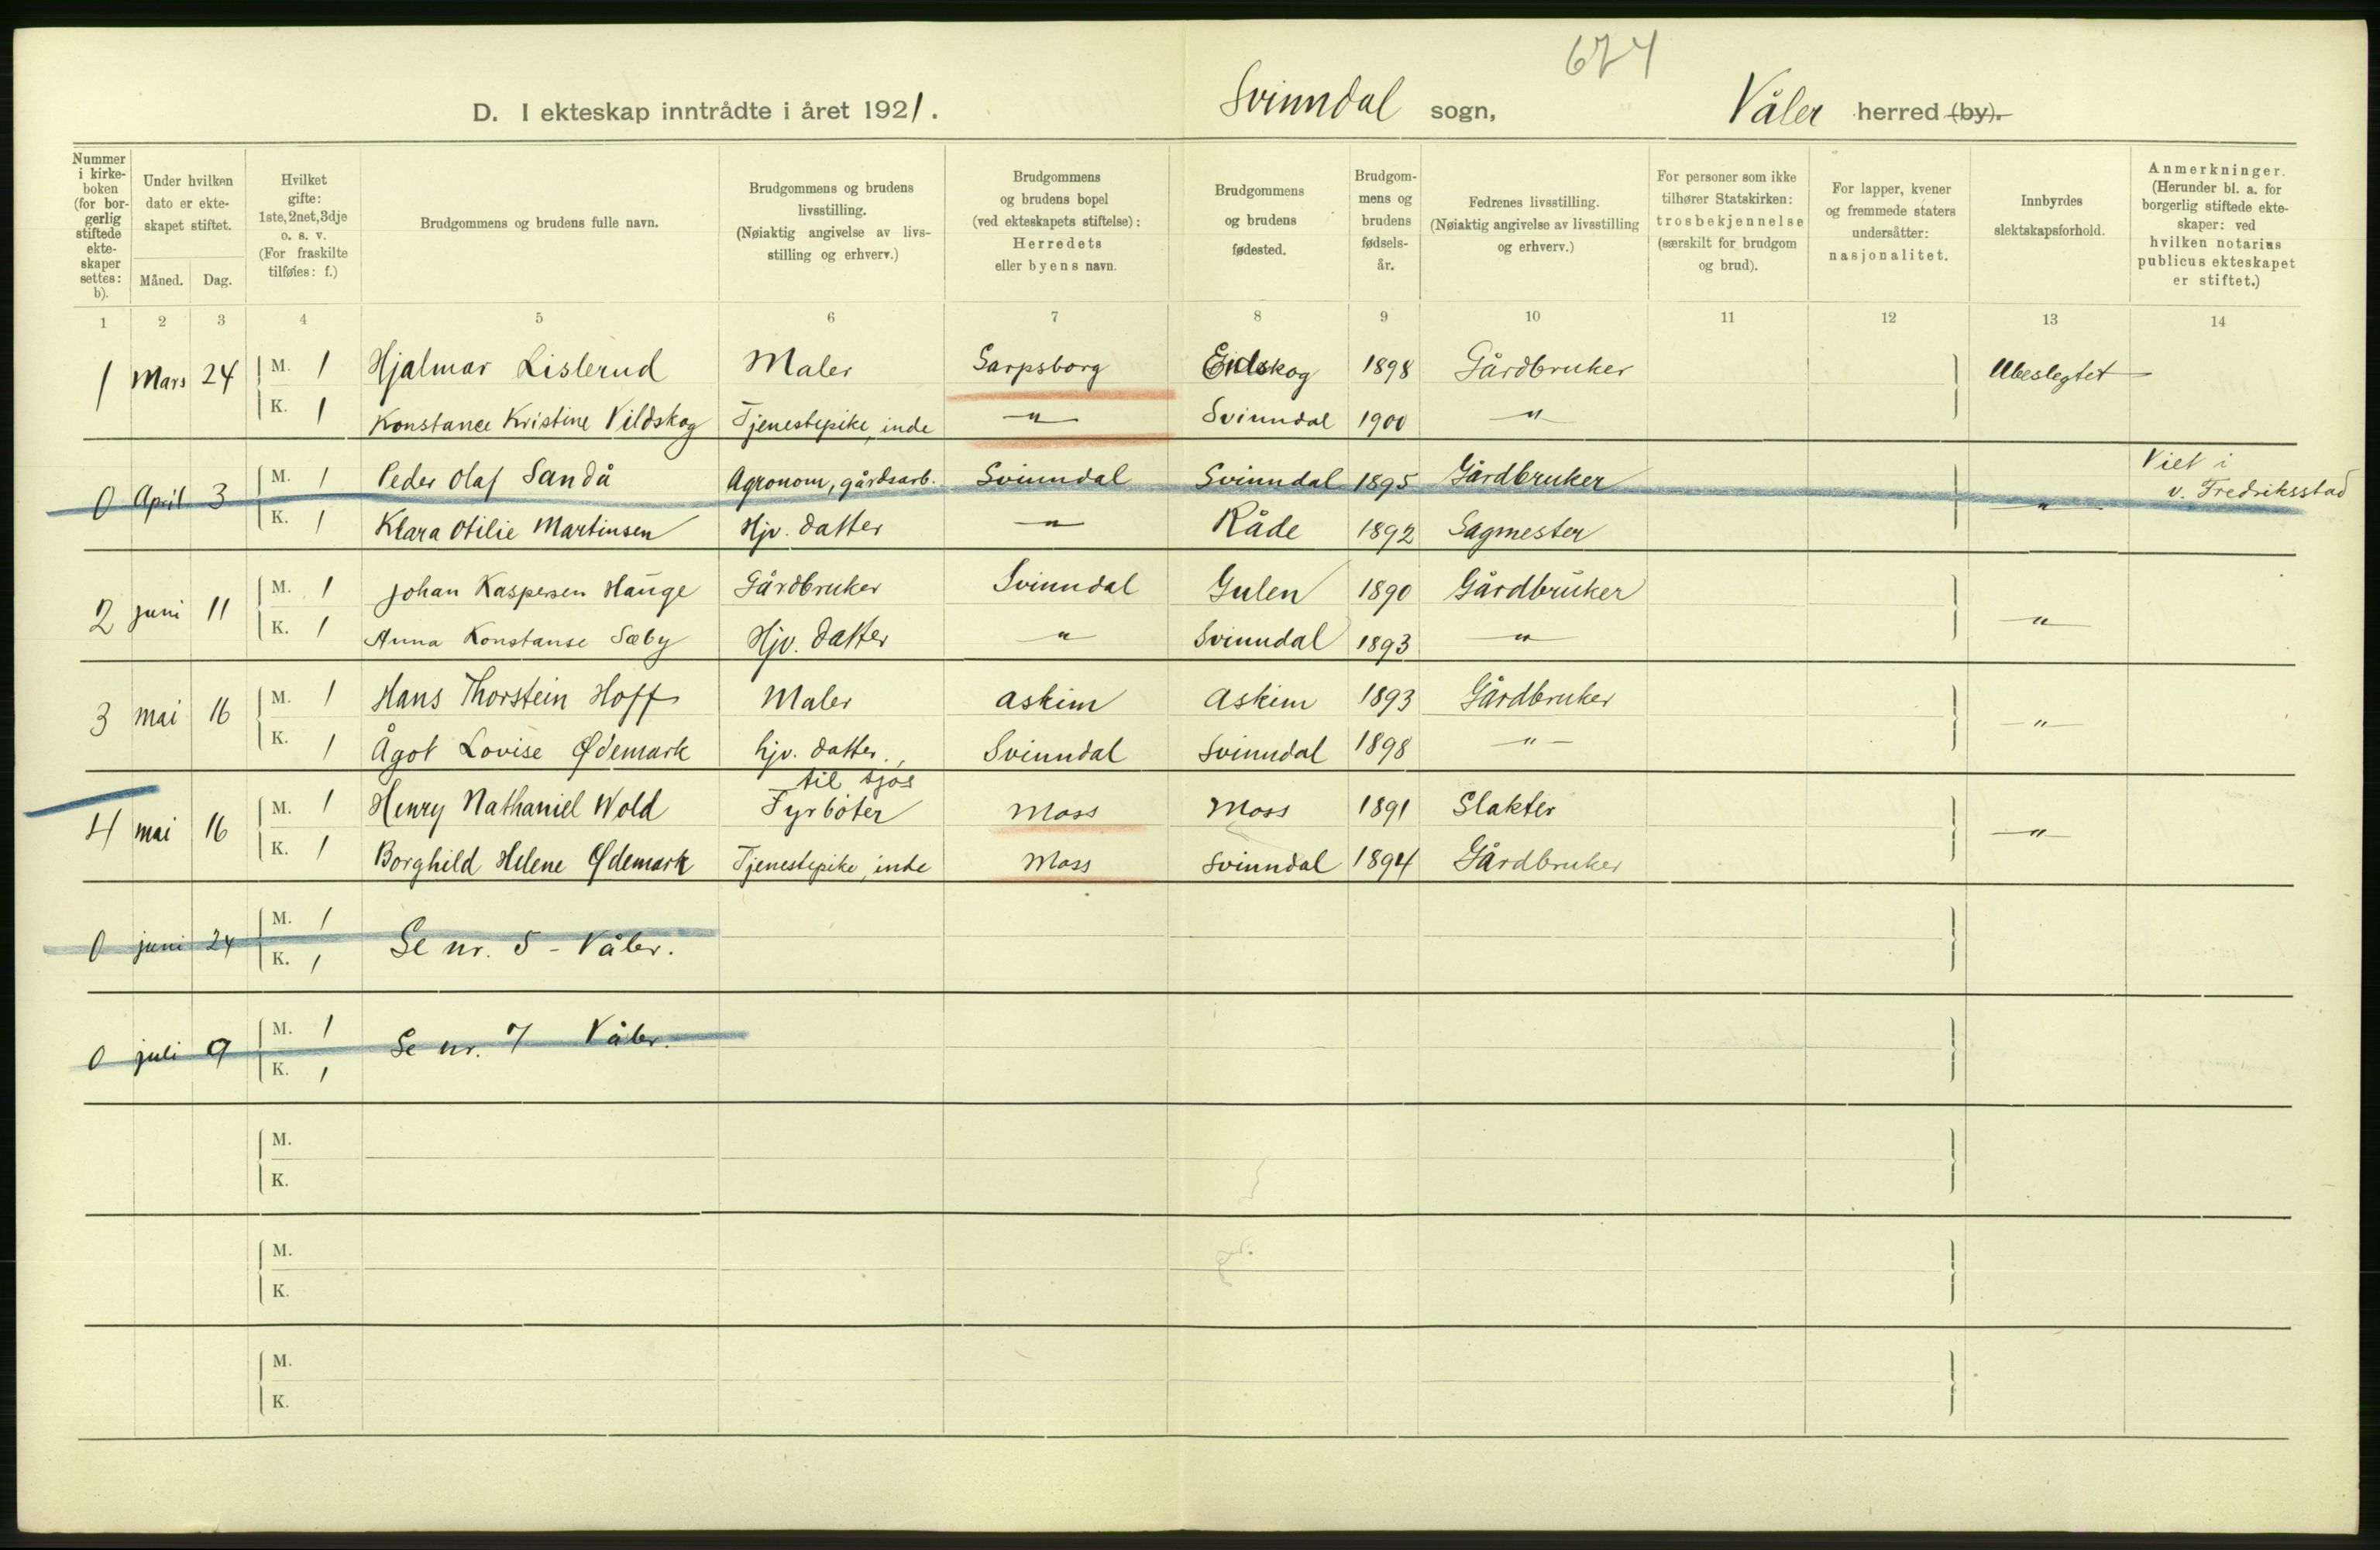 674
D. I ekteskap inntrådte i året 1921. Svinndal sogn, Våler herred (by).
Nummer i kirkeboken (for borgerlig stiftede ekteskaper settes: b).
Under hvilken dato er ekteskapet stiftet.
Måned. Dag.
Hvilket gifte: 1ste, 2net, 3dje o. s. v. (For fraskilte tilføies: f.)
Brudgommens og brudens fulle navn.
Brudgommens og brudens livsstilling. (Nøiaktig angivelse av livsstilling og erhverv.)
Brudgommens og brudens bopel (ved ekteskapets stiftelse): Herredets eller byens navn.
Brudgommens og brudens fødested.
Brudgommens og brudens fødselsår.
Fedrenes livsstilling. (Nøiaktig angivelse av livsstilling og erhverv.)
For personer som ikke tilhører Statskirken: trosbekjennelse (særskilt for brudgom og brud).
For lapper, kvener og fremmede staters undersåtter: nasjonalitet.
Innbyrdes slektskapsforhold.
Anmerkninger. (Herunder bl. a. for borgerlig stiftede ekteskaper: ved hvilken notarius publicus ekteskapet er stiftet.)
1 2 3 4 5 6 7 8 9 10 11 12 13 14
1 Mars 24 M. 1 Hjalmar Lislerud Maler Sarpsborg Eidskog 1898 Gårdbruker Ubeslegtet
K. 1 Konstance Kristine Vildskog Tjenestepike, inde — " — Svinndal 1900 — " —
0 April 3 M. 1 Peder Olaf Sandå Agronom, gårdsarb. Svinndal Svinndal 1895 Gårdbruker — " — Viet i v. Fredriksstad
K. 1 Klara Otilie Martinsen Hjv. datter — " — Råde 1892 Sagmester
2 juni 11 M. 1 Johan Kaspersen Hauge Gårdbruker Svinndal Gulen 1890 Gårdbruker — " —
K. 1 Anna Konstanse Sæby Hjv. datter — " — Svinndal 1893 — " —
3 mai 16 M. 1 Hans Thorstein Hoff Maler Askim Askim 1893 Gårdbruker — " —
K. 1 Ågot Lovise Ødemark hjv. datter. Svinndal Svinndal 1898 — " —
til sjøs
4 mai 16 M. 1 Henry Nathaniel Wold Fyrbøter Moss Moss 1891 Slakter — " —
K. 1 Borghild Helene Ødemark Tjenestepike, inde Moss Svinndal 1894 Gårdbruker
0 juni 24 M. 1 Se nr. 5 - Våler.
K. 1
0 juli 9 M. 1 Se nr. 7 Våler.
K. 1
M.
K.
M.
K.
M.
K.